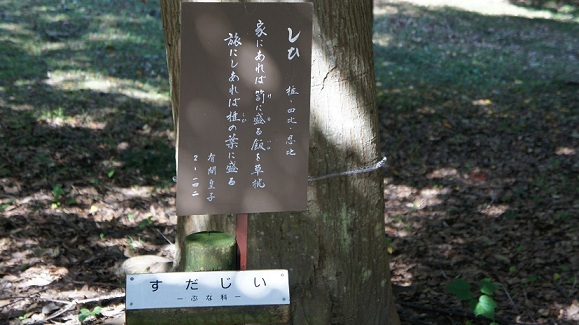 しひ
椎・四比・思比
家にあれば笥に盛る飯を草枕
旅にしあれば椎の葉に盛る
有間皇子
2-一四二
すだじい
ーぶな科ー